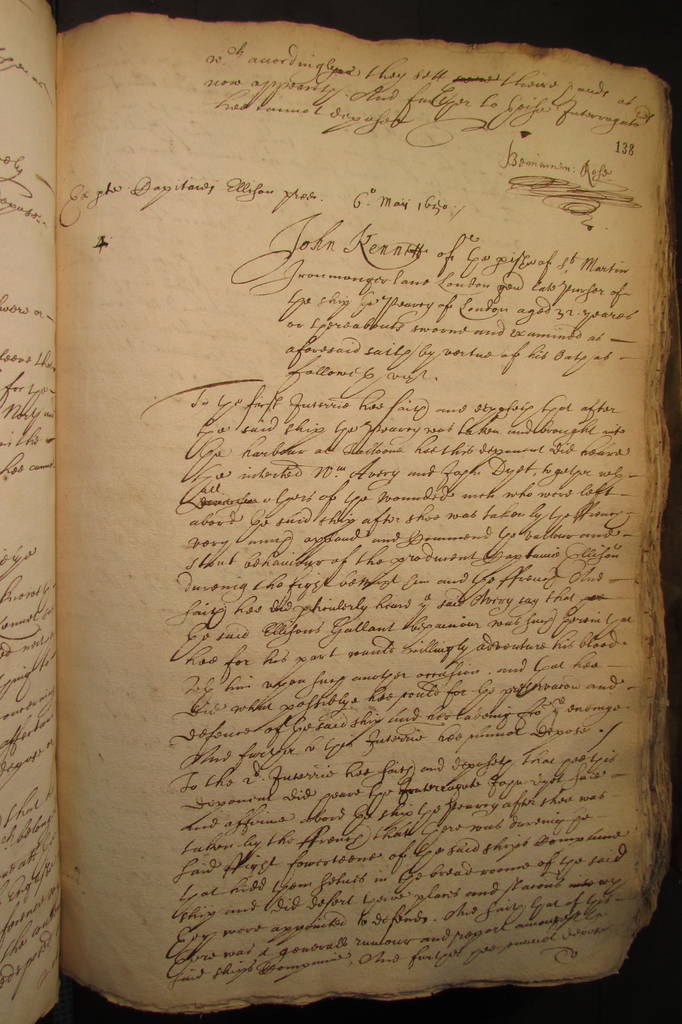 w:ch accordingly they sett theire hands as
now appeareth. And further to theise Interrogates
hee cannot depose
138
Beniamin: Rose
Ex pte Capitanei Ellison pred. 6:o Maii 1650
4
John Kennett of the pish of S:t Martin
Ironmonger lane London gent late purser of
the ship the Pearey of London aged 32 yeares
or thereabouts sworne and examined as
aforesaid saith by vertue of his Oath as
followeth vizt.
To the first Interrie hee saith and deposeth that after
the said ship the Pearey was taken and brought into
the harbour at hee this deponent did heare
the interred W:m Avery and John Dyet together with
all others of the wounded men who were left
abord the said ship after shee was taken by the ffrench
very much applaud and Commend the valour and
stout behaviour of the producent Captaine Ellison
dureing the fight betwixt him and the ffrench And
saith hee did pticulerly heare y:e said Avery say that
the said Ellisons Gallant behaviour was such therein that
hee for his part would willingly adventure his blood
with him upon such another occasion. and that hee
did what possiblye hee could for the preservacon and
defence of the said ship and not takeing to y:e enemye
And further to this Interrie hee cannot depose ./
To the 2:d Interrie hee saith and deposeth that hee this
deponent did heare the Interrogate John Dyet saie
and affirme abord the ship the Pearey after shee was
taken by the ffrench that there was dureing the
said ffight fowerteene of the said ships Companie
that hidd them selves in the bread roome of the said
ship and did desert theire places and stacons w:ch
they were appointed to defend. And saith that of this
there was a generall rumour and report amongst the
said ships Companie. And further hee cannot depose